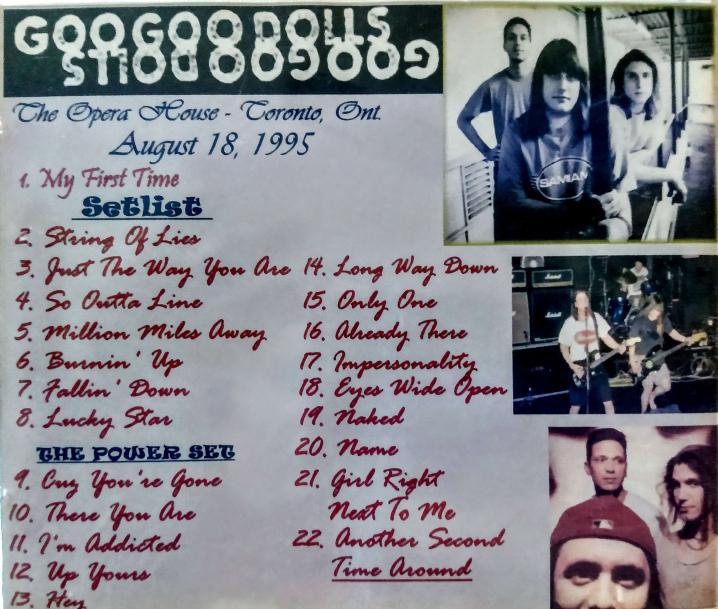 GOO GOO DOLLS
GOO GOO DOLLS
The Opera House - Toronto, Ont.
August 18, 1995
1. My First Time
Setlist
2. String Of Lies
3. Just The Way You Are
4. So Outta Line
5. Million Miles Away
6. Burnin' Up
7. Fallin' Down
8. Lucky Star
THE POWER SET
9. Cuz You're Gone
10. There You Are
11. I'm Addicted
12. Up Yours
13. Hey
14. Long Way Down
15. Only One
16. Already There
17. Impersonality
18. Eyes Wide Open
19. Naked
20. Name
21. Girl Right
Next To Me
22. Another Second
Time Around
SAMIAM
Marshall
Marshall